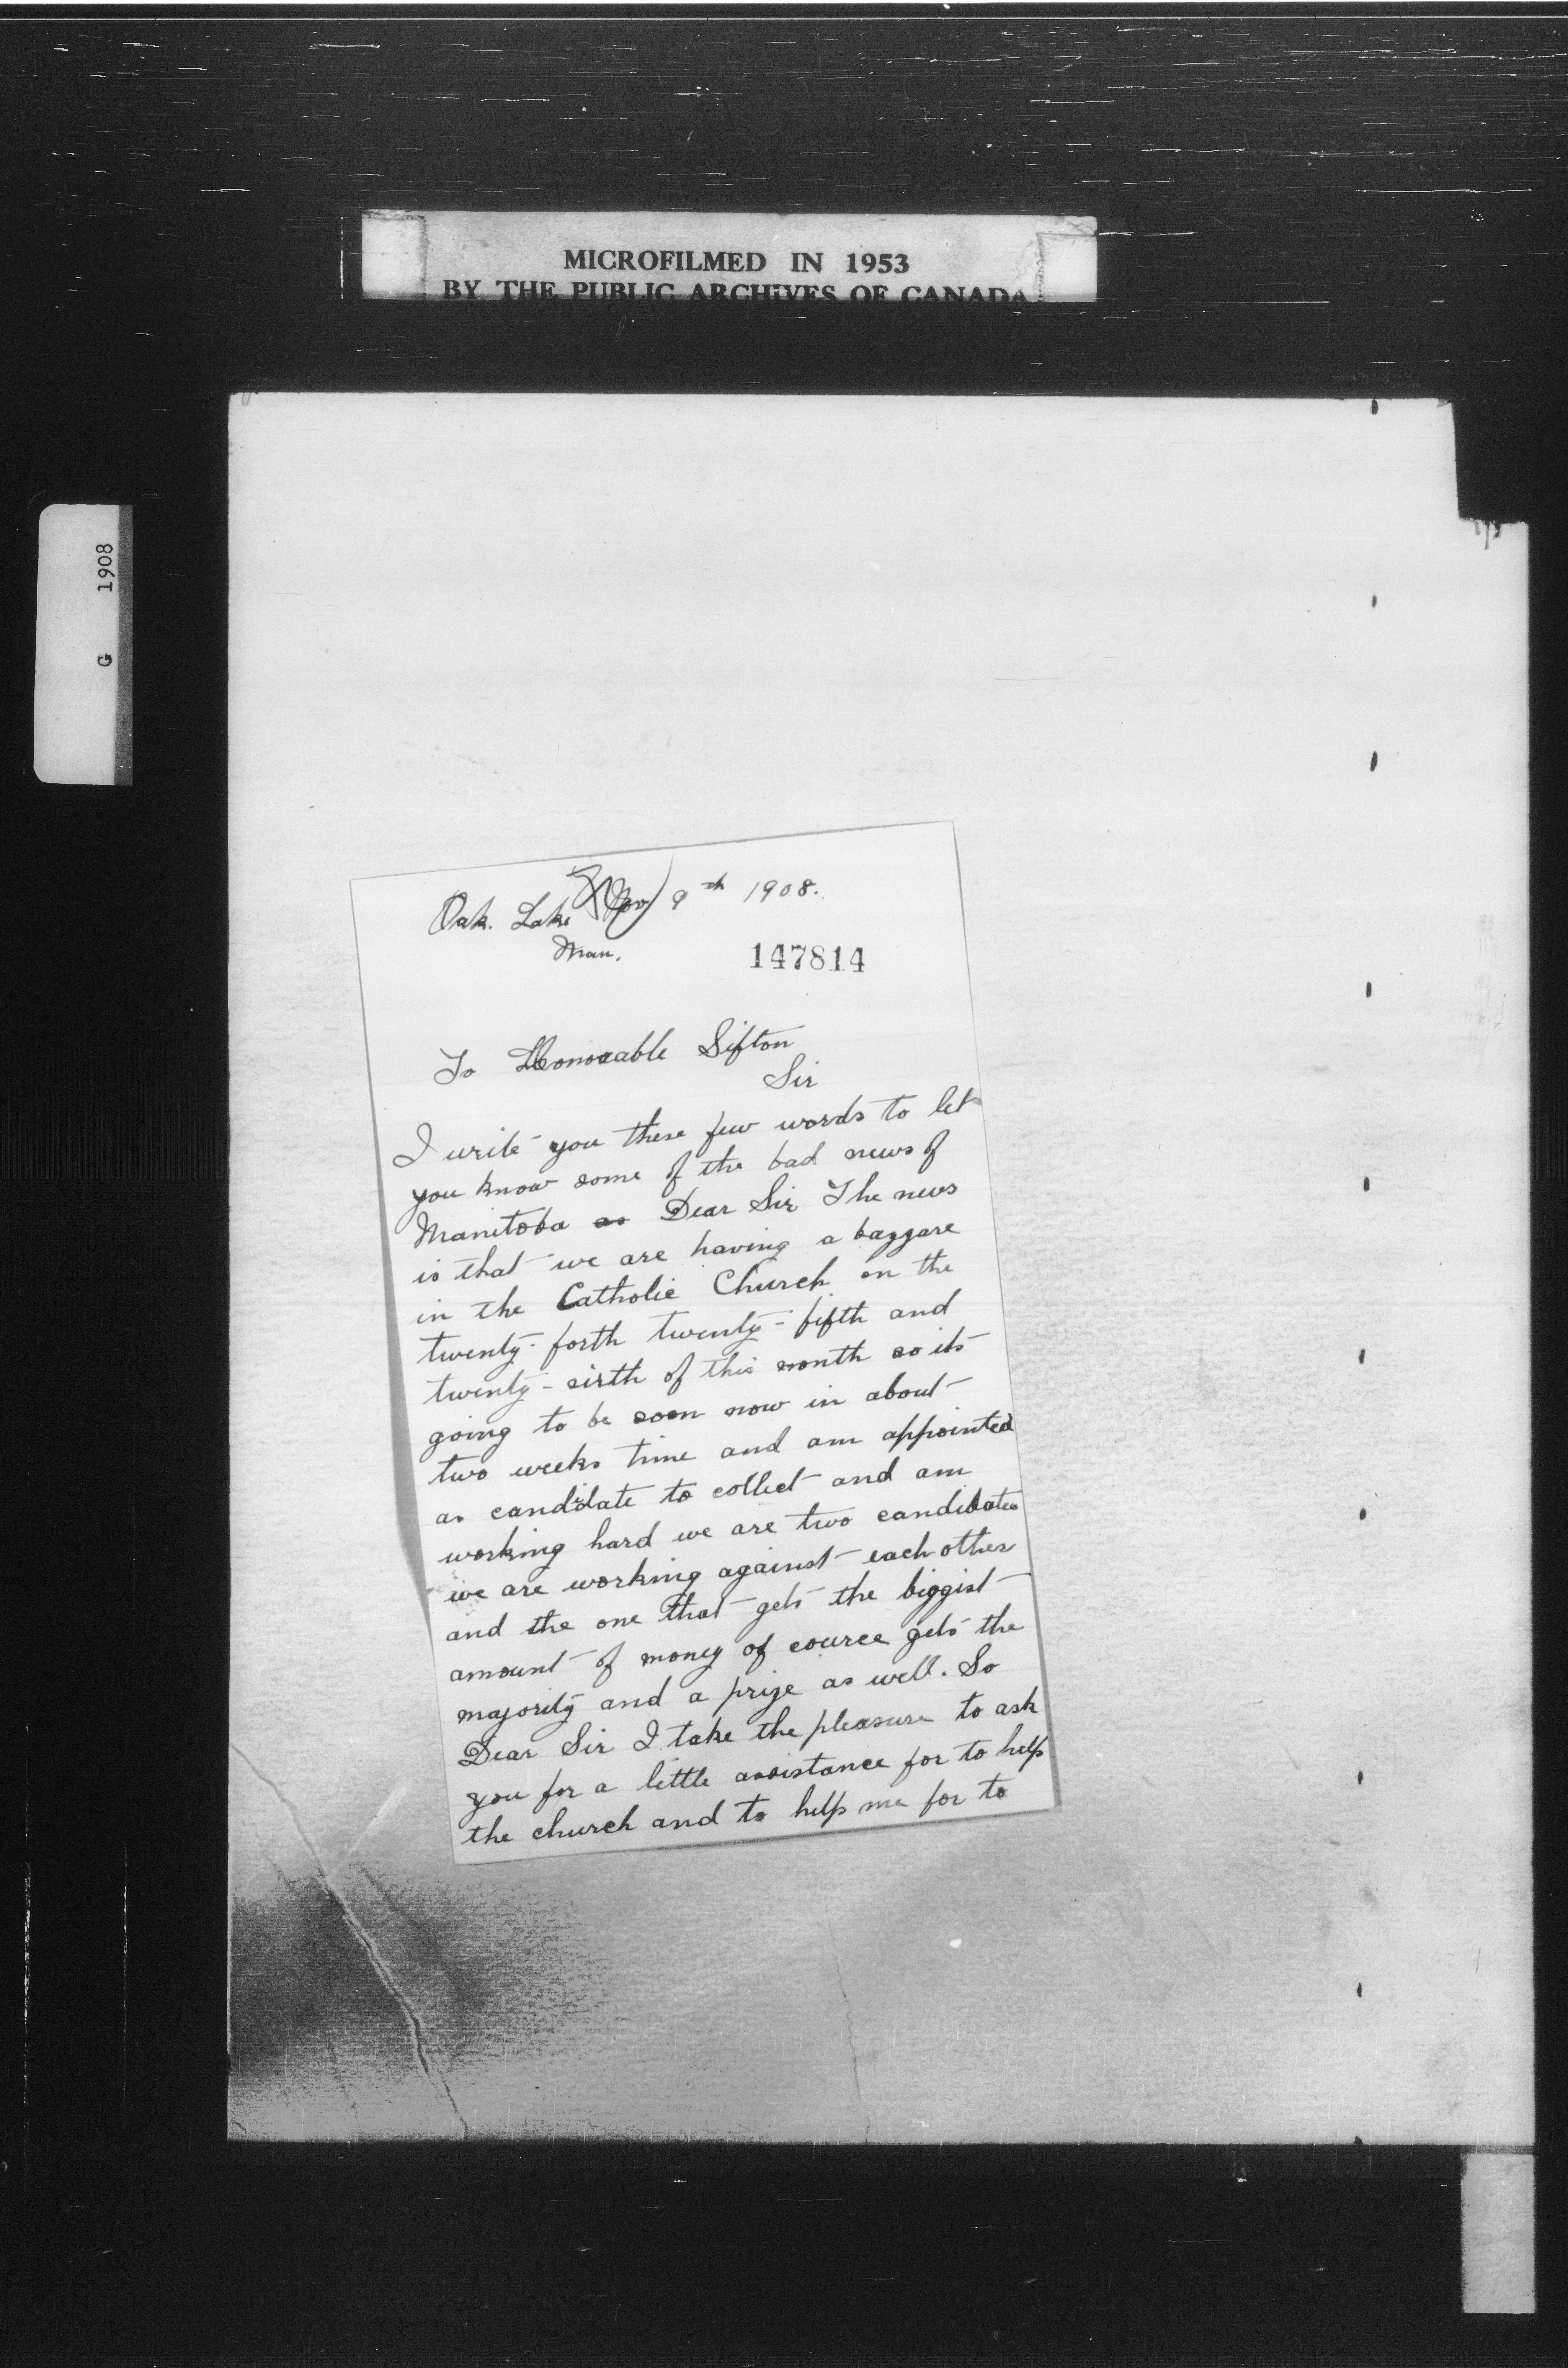 MICROFILMED IN 1953
BY THE PUBLIC ARCHIVES OF CANADA
G 1908
Oak. Lake Nov 9th 1908.
Man.
147814
To Honorable Sifton
Sir
I write you these few words to let
you know some of the bad news of
Manitoba as Dear Sir The news
is that we are having a bazzare
in the Catholic Church on the
twenty-forth twenty-fifth and
twenty-sixth of this month so its
going to be soon now in about
two weeks time and am appointed
as candidate to collect and am
working hard we are two candidates
we are working against each other
and the one that gets the biggist
amount of money of cource gets the
majority and a prize as well. So
Dear Sir I take the pleasure to ask
you for a little assistance for to help
the church and to help me for to